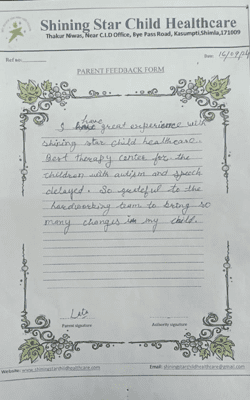 Shining Star Child Healthcare
Thakur Niwas, Near C.I.D Office, Bye Pass Road, Kasumpti,Shimla,171009
Ref no:
Date
PARENT FEEDBACK FORM
have
I great experience with
shining star child healthcare.
Best therapy center for the
children with autism and speech
delayed. So grateful to the
hardworking team to bring so
many changes in my child.
Parent signature
Authority signature
Website: www.shiningstarchildhealthcare.com
Email: shiningstarchildhealthcare@gmail.com